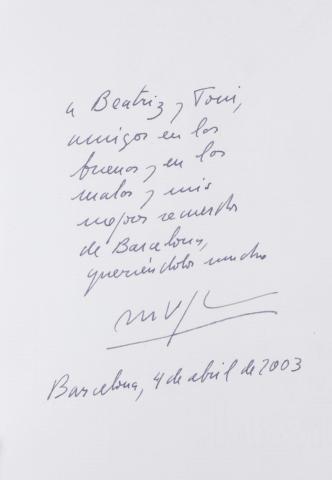 a Beatriz y Toni,
amigos en los
buenos y en los
malos y mis
mejores recuerdos
de Barcelona,
queriéndolos mucho
Barcelona, 4 de abril de 2003